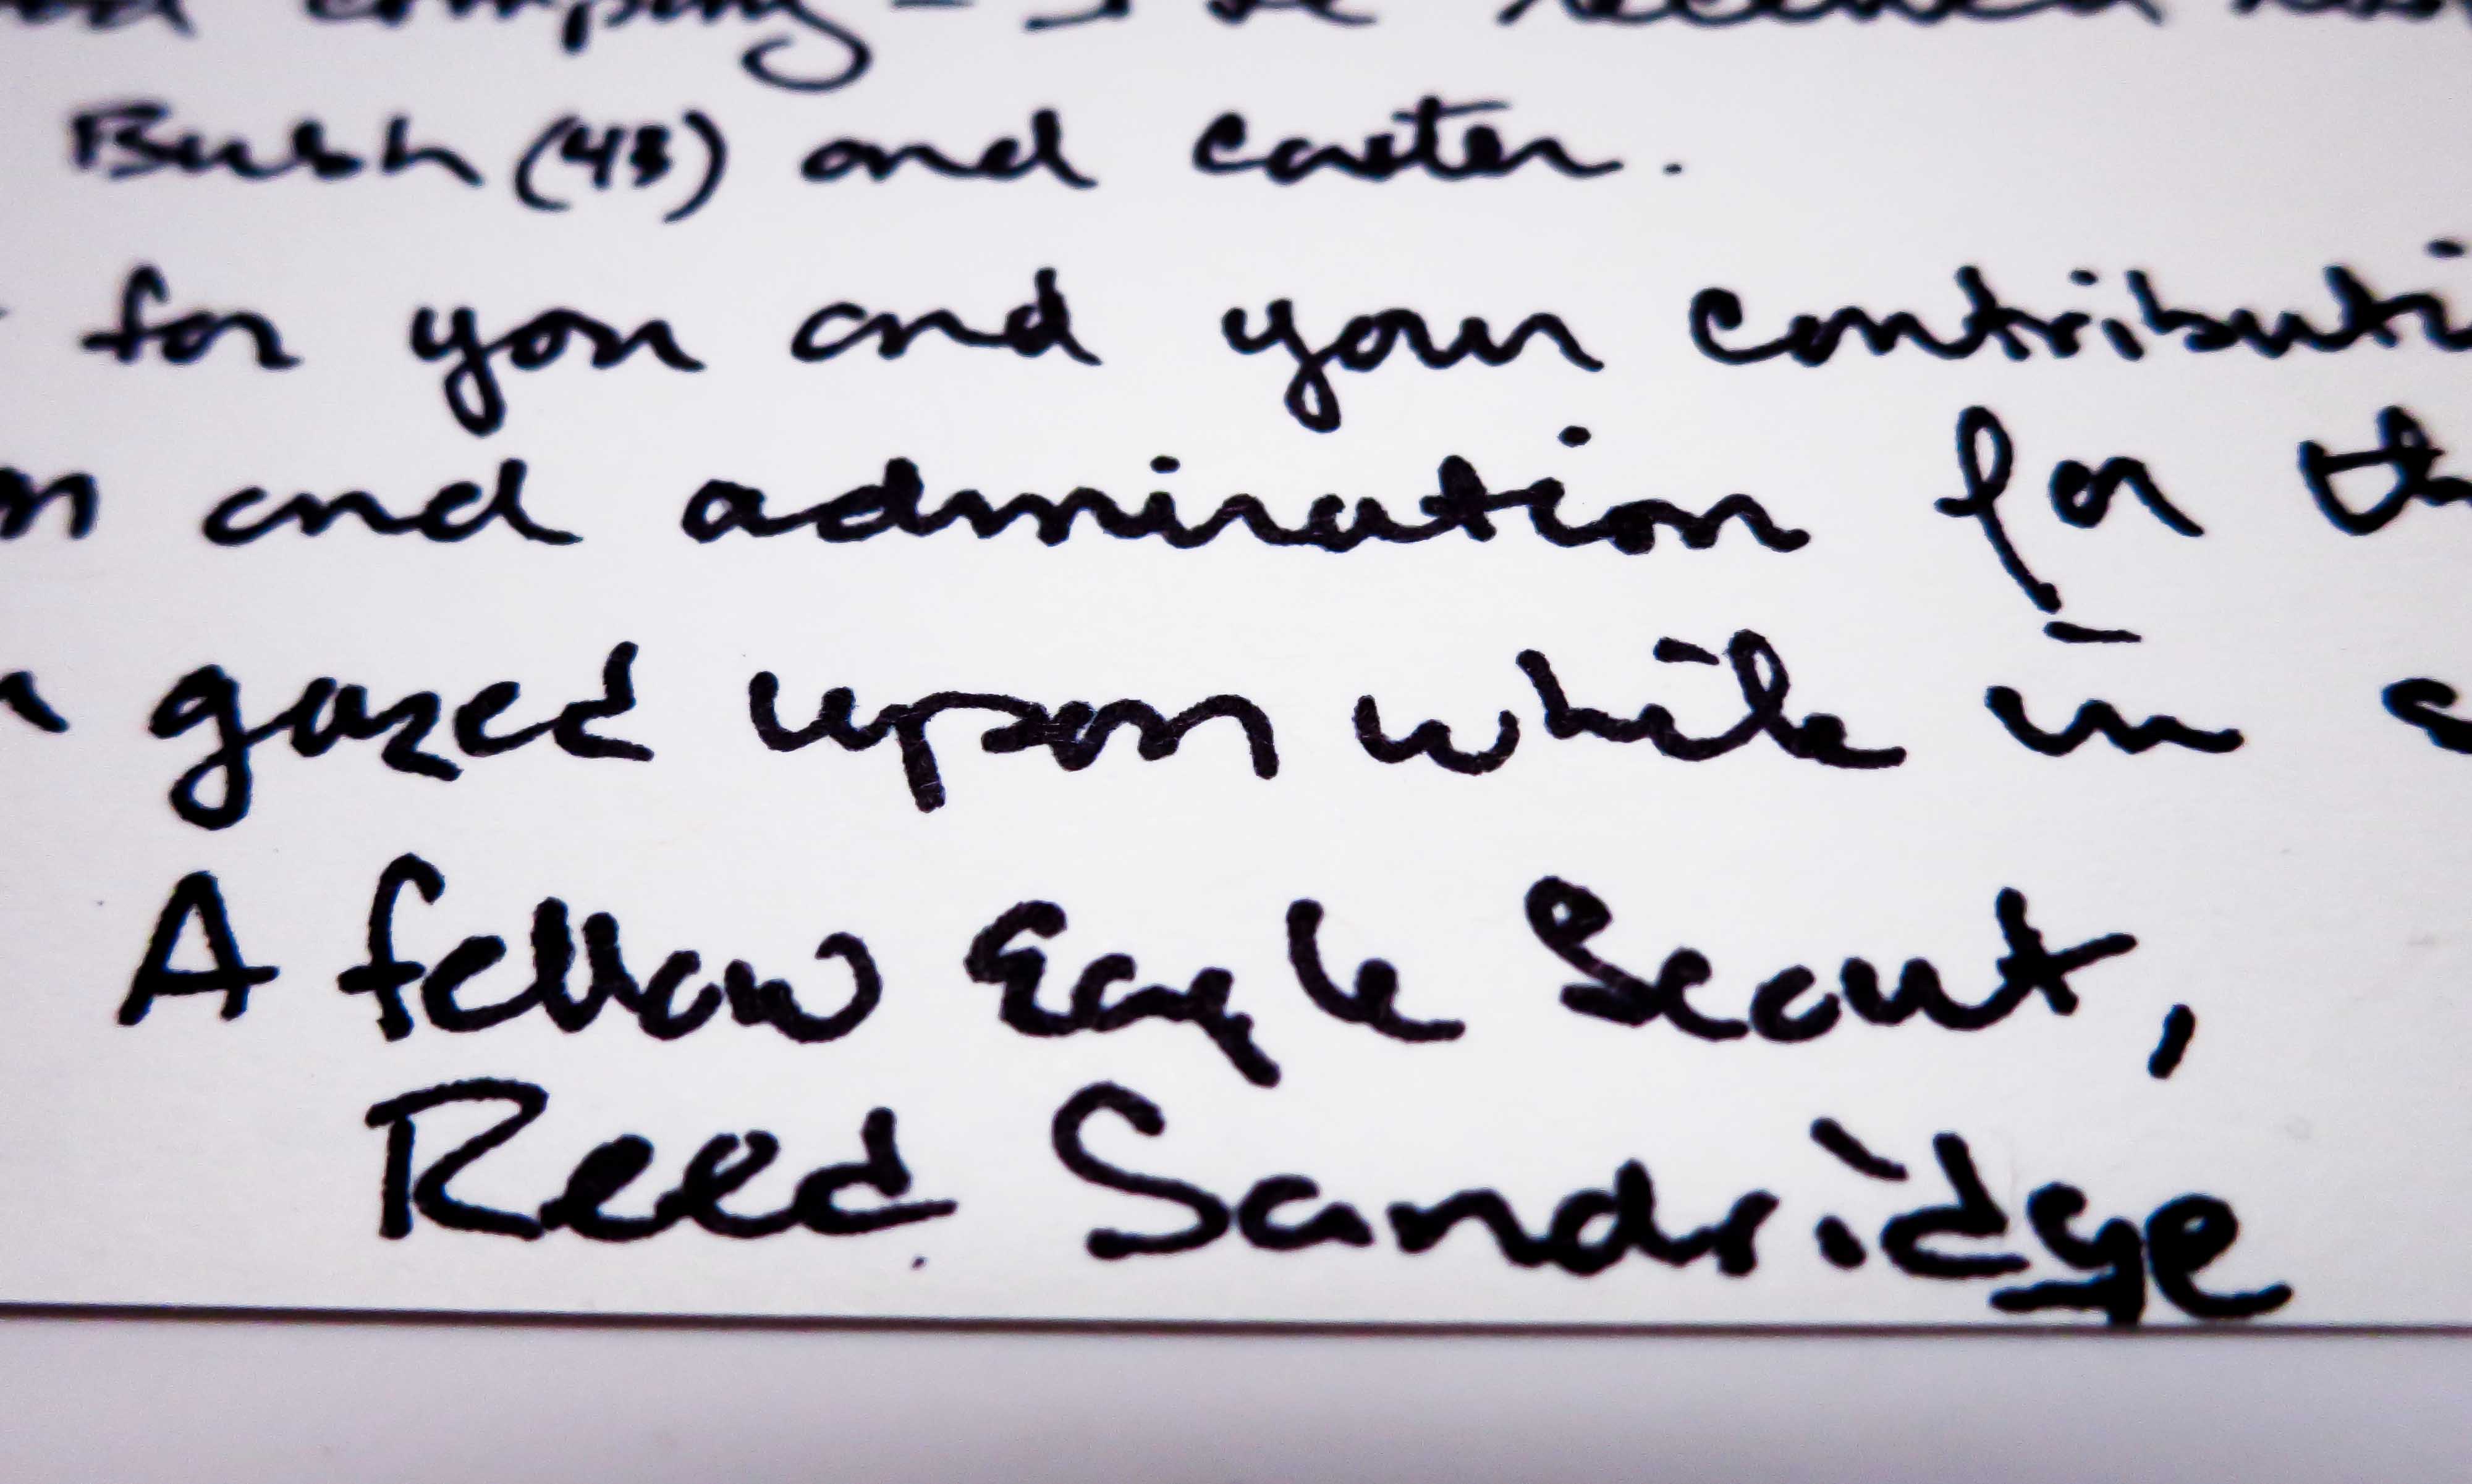 company - I've received
Bush (43) and Carter.
for you and your contributi
and admiration for th
gazed upon while in
A fellow Eagle Scout,
Reed Sandridge